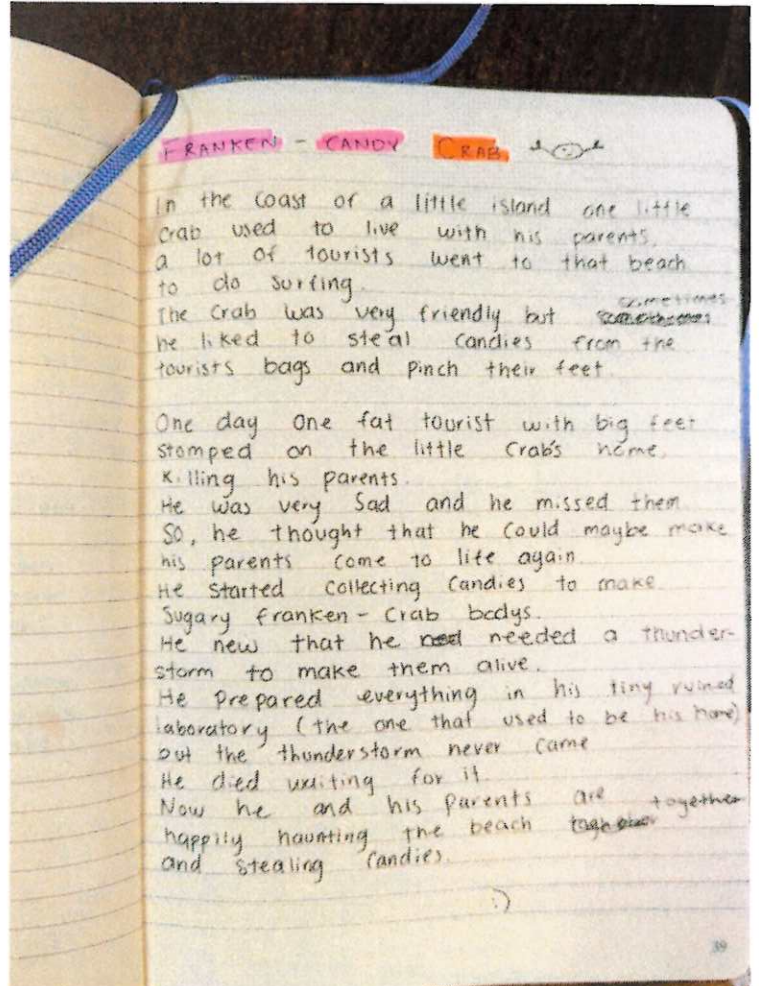 FRANKEN - CANDY CRAB
In the Coast of a little island one little
crab used to live with his parents.
a lot of tourists went to that beach
to do surfing.
The Crab was very friendly but sometimes
he liked to steal candies from the
tourists bags and pinch their feet.
One day one fat tourist with big feet
stomped on the little Crab's home,
Killing his parents.
He was very Sad and he missed them
So, he thought that he could maybe make
his parents come to life again.
He started collecting Candies to make
Sugary franken - Crab bodys.
He new that he needed a thunder-
storm to make them alive.
He prepared everything in his tiny ruined
laboratory (the one that used to be his home)
but the thunderstorm never came
He died waiting for it.
Now he and his parents are together
happily haunting the beach
and stealing Candies.
:)
39